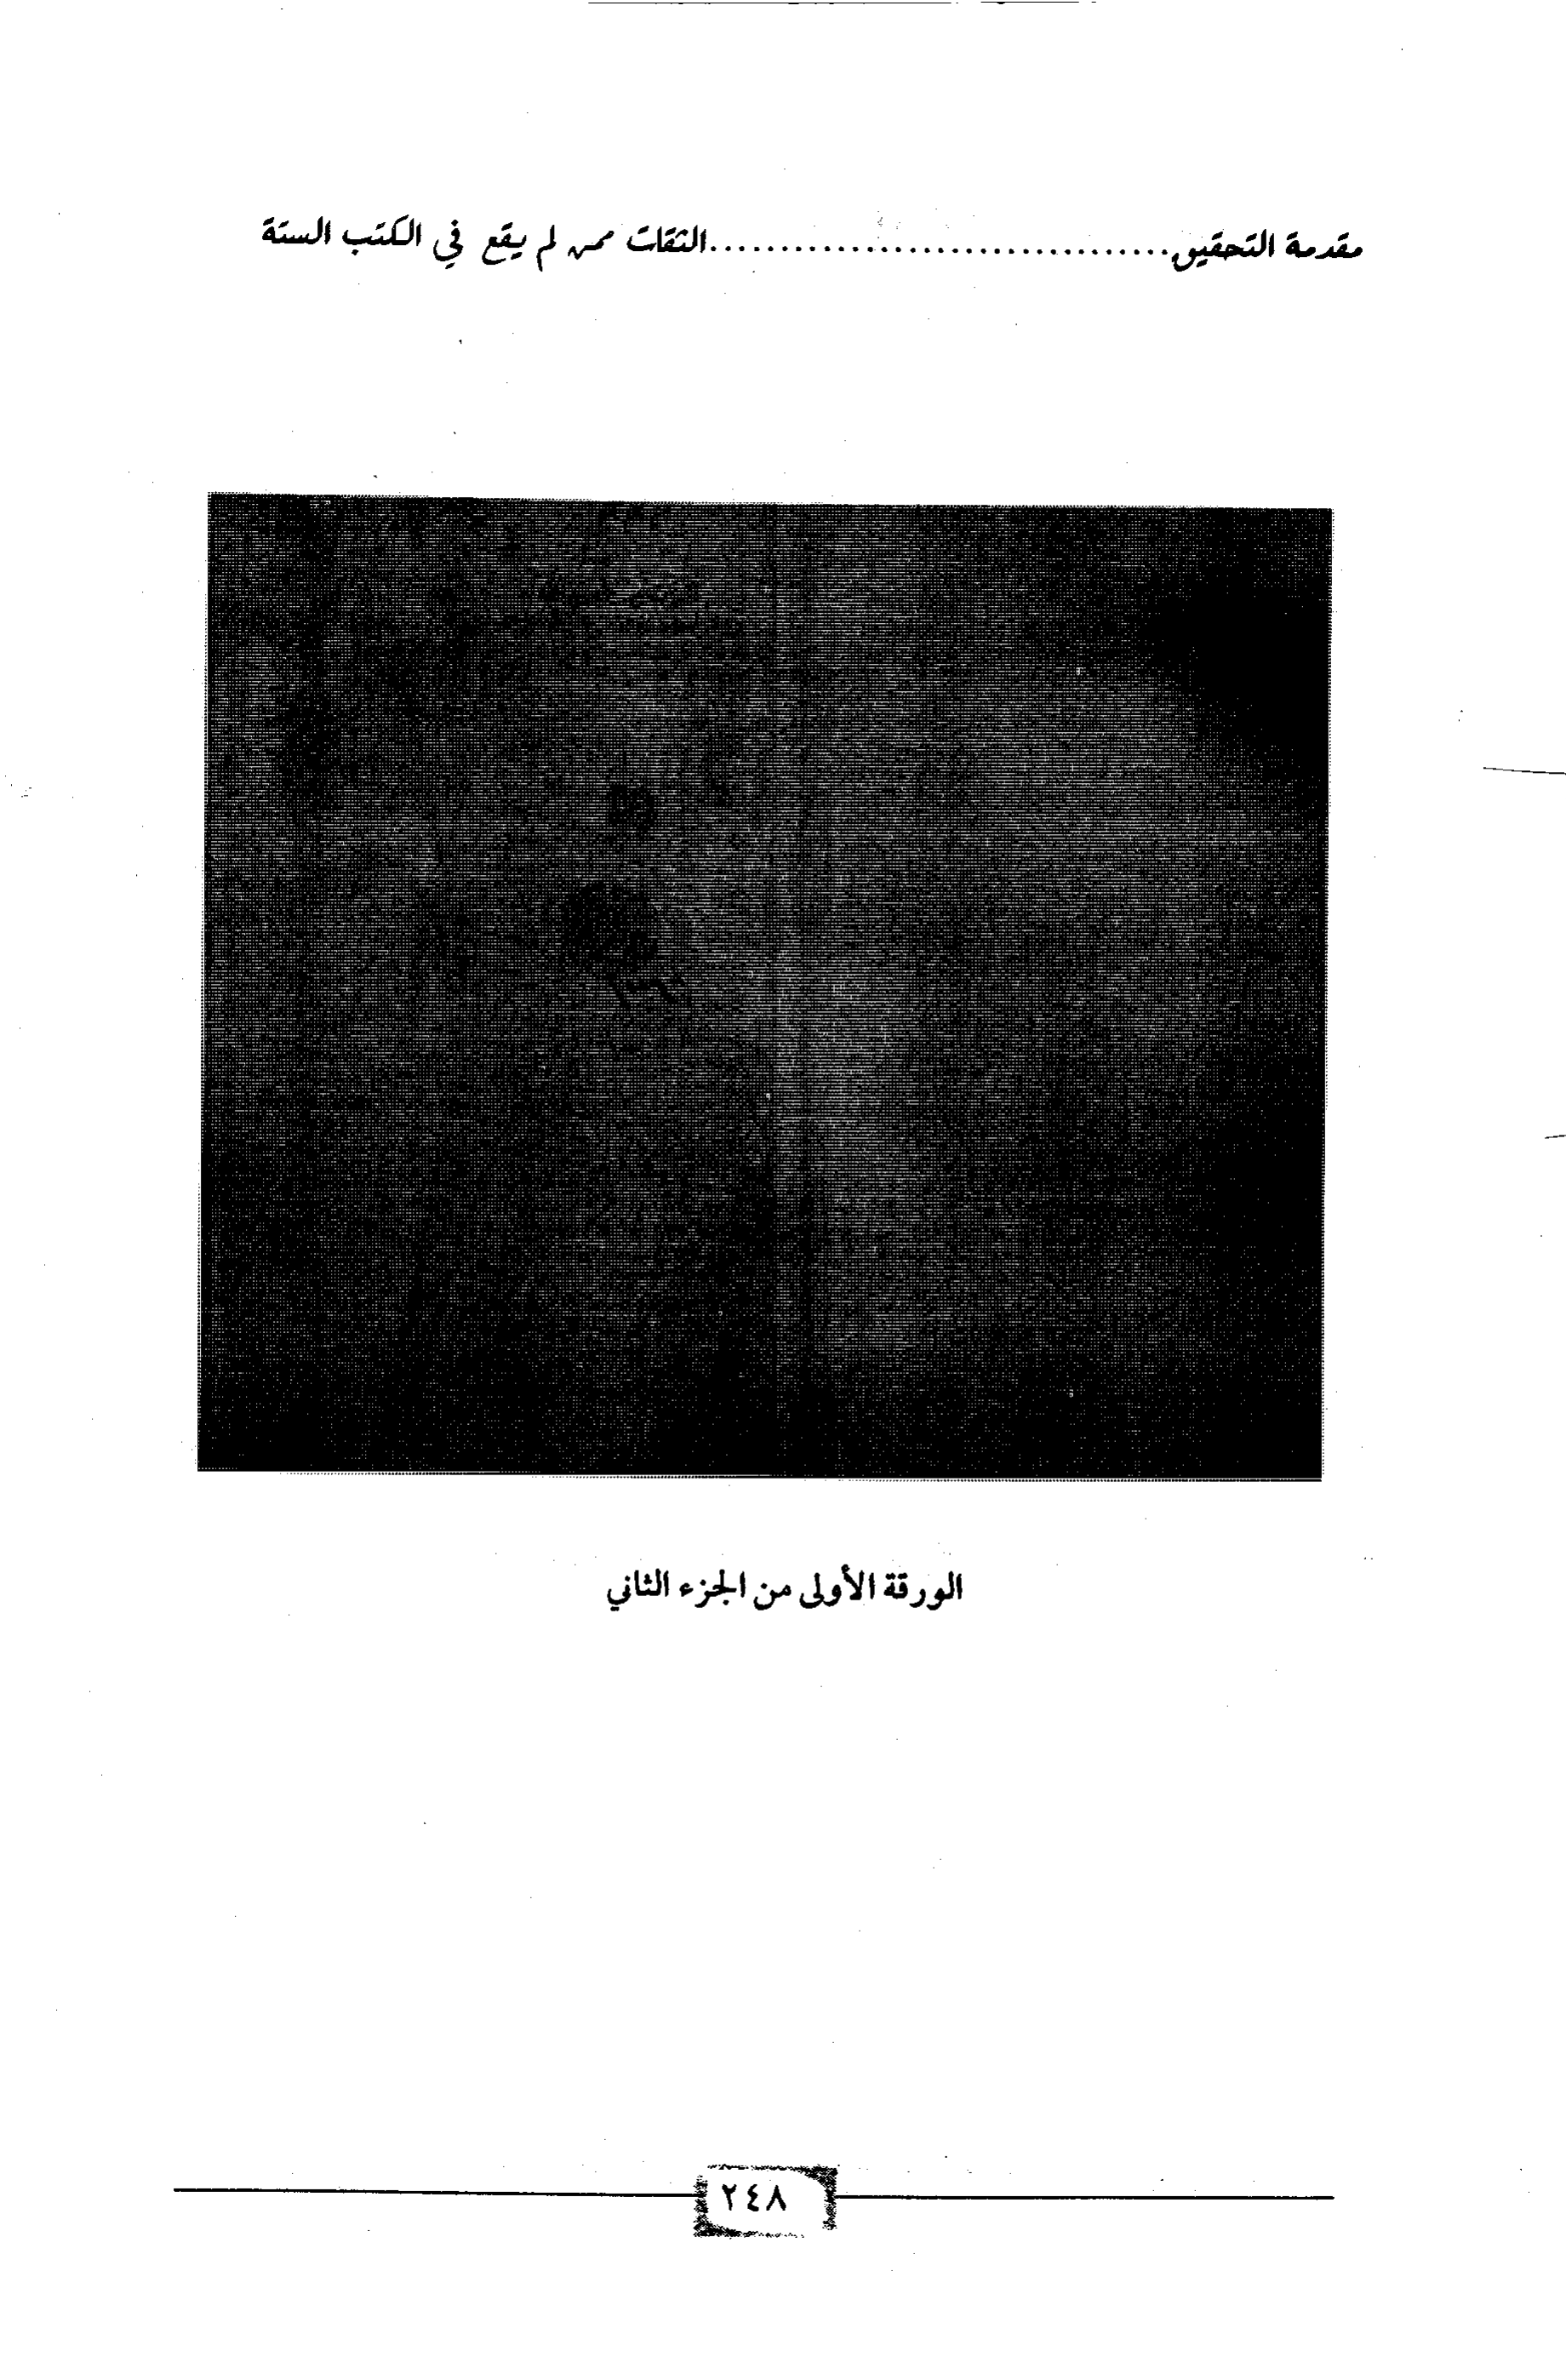 مقدمة التحقيق................................الثقات ممن لم يقع في الكتب الستة
الورقة الأولى من الجزء الثاني
٢٤٨